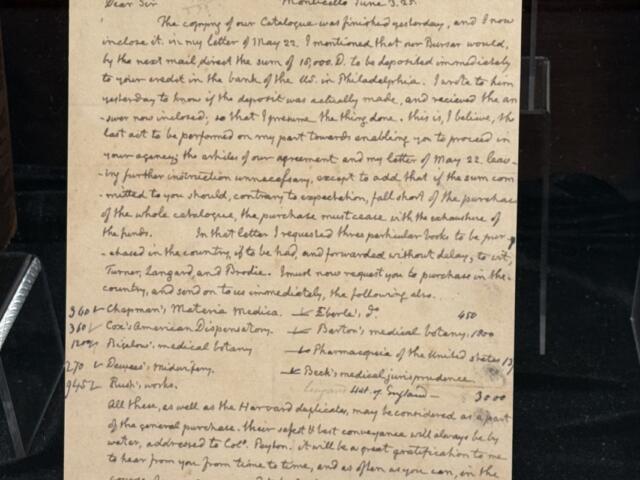 Dear Sir Monticello June. 3. 25.
The copying of our Catalogue was finished yesterday, and I now
inclose it. in my letter of May 22. I mentioned that our Bursar would,
by the next mail, direct the sum of 18,000. D. to be deposited immediately
to your credit in the bank of the US. in Philadelphia. I wrote to him
yesterday to know if the deposit was actually made, and recieved the an
-swer now inclosed; so that I presume the thing done. this is, I believe, the
last act to be performed on my part towards enabling you to proceed in
your agency; the articles of our agreement and my letter of May 22. leav-
-ing further instruction unnecessary, except to add that if the sum com
-mitted to you should, contrary to expectation, fall short of the purchase
of the whole catalogue, the purchase must cease with the exhausture of
the funds. In that letter I requested three particular books to be pur-
-chased in the country, if to be had, and forwarded without delay, to wit,
Turner, Langard, and Brodie. I must now request you to purchase in the
country, and send on to us immediately, the following also.
340 Chapman's Materia Medica. Eberle's, do 450
360 Coxe's American Dispensatory. Barton's medical botany. 1800
1200 Bigelow's medical botany Pharmacopeia of the United states
270 Dewees's midwifery. Beck's medical jurisprudence
945 Rush's works. Hist. of England 3000
All these, as well as the Harvard duplicates, may be considered as a part
of the general purchase. their safest & best conveyance will always be by
water, addressed to Colo. Peyton. it will be a great gratification to me
to hear from you from time to time, and as often as you can, in the